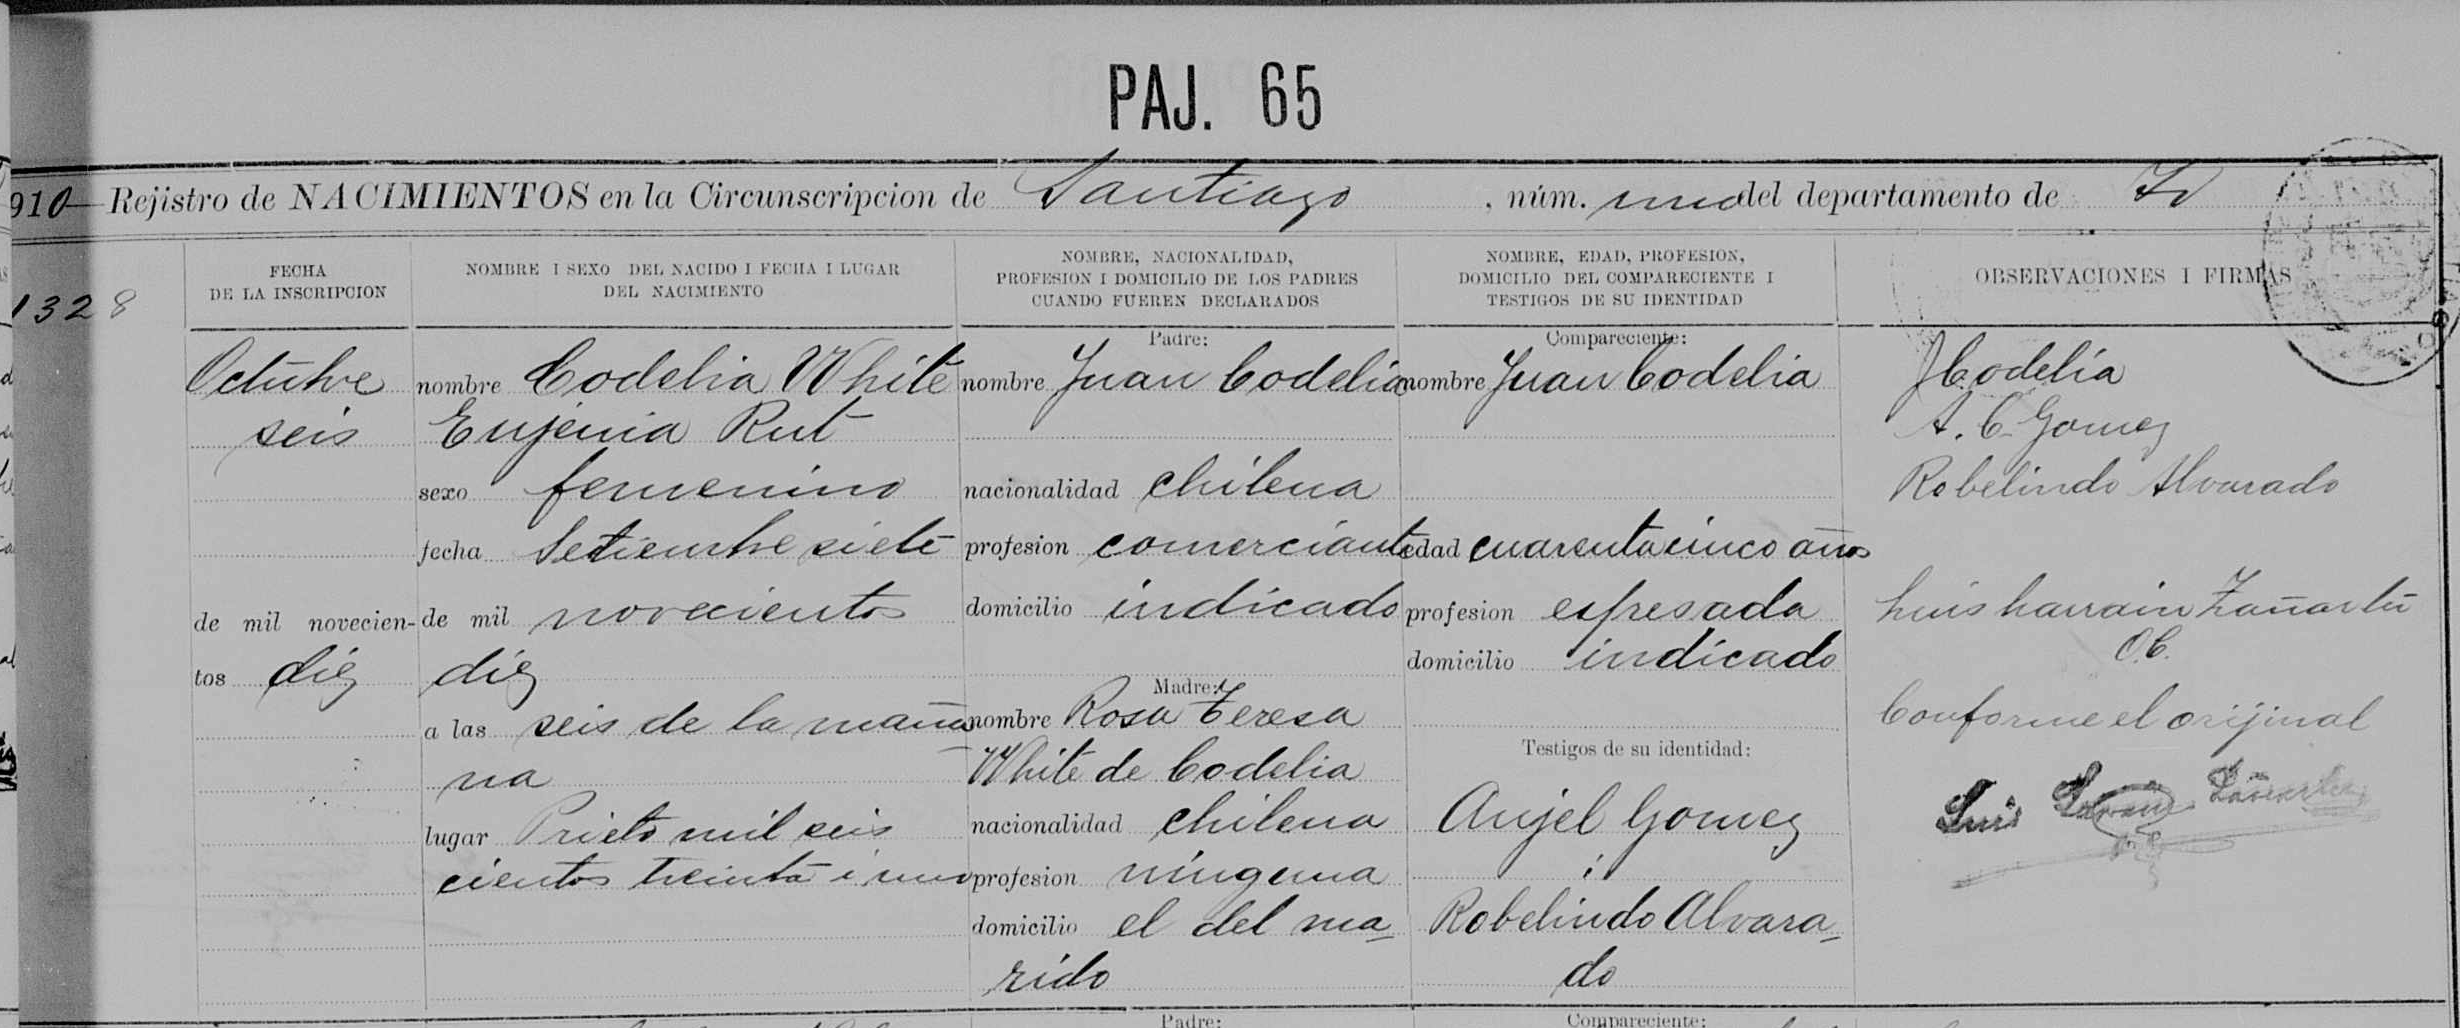 PAJ. 65
910 Rejistro de NACIMIENTOS en la Circunscripcion de Santiago, núm. uno del departamento de Id
1328
FECHA
DE LA INSCRIPCION
Octubre
seis
de mil novecien-
tos diez
NOMBRE I SEXO DEL NACIDO I FECHA I LUGAR
DEL NACIMIENTO
nombre Codelia White
Eujenia Rut
sexo femenino
fecha Setiembre siete
de mil novecientos
diez
a las seis de la maña
na
lugar Prieto mil seis
cientos treinta i uno
NOMBRE, NACIONALIDAD,
PROFESION I DOMICILIO DE LOS PADRES
CUANDO FUEREN DECLARADOS
Padre:
nombre Juan Codelia
nacionalidad chilena
profesion comerciante
domicilio indicado
Madre:
nombre Rosa Teresa
White de Codelia
nacionalidad chilena
profesion ninguna
domicilio el del ma-
rido
NOMBRE, EDAD, PROFESION,
DOMICILIO DEL COMPARECIENTE I
TESTIGOS DE SU IDENTIDAD
Compareciente:
nombre Juan Codelia
edad cuarenta cinco años
profesion espresada
domicilio indicado
Testigos de su identidad:
Anjel Gomez
i
Robelindo Alvara-
do
OBSERVACIONES I FIRMAS
J Codelia
A. C. Gomez
Robelindo Alvarado
Luis Larrain Zañartu
O.C.
Conforme el orijinal
Luis Larrain Zañartu
Padre:
Compareciente: